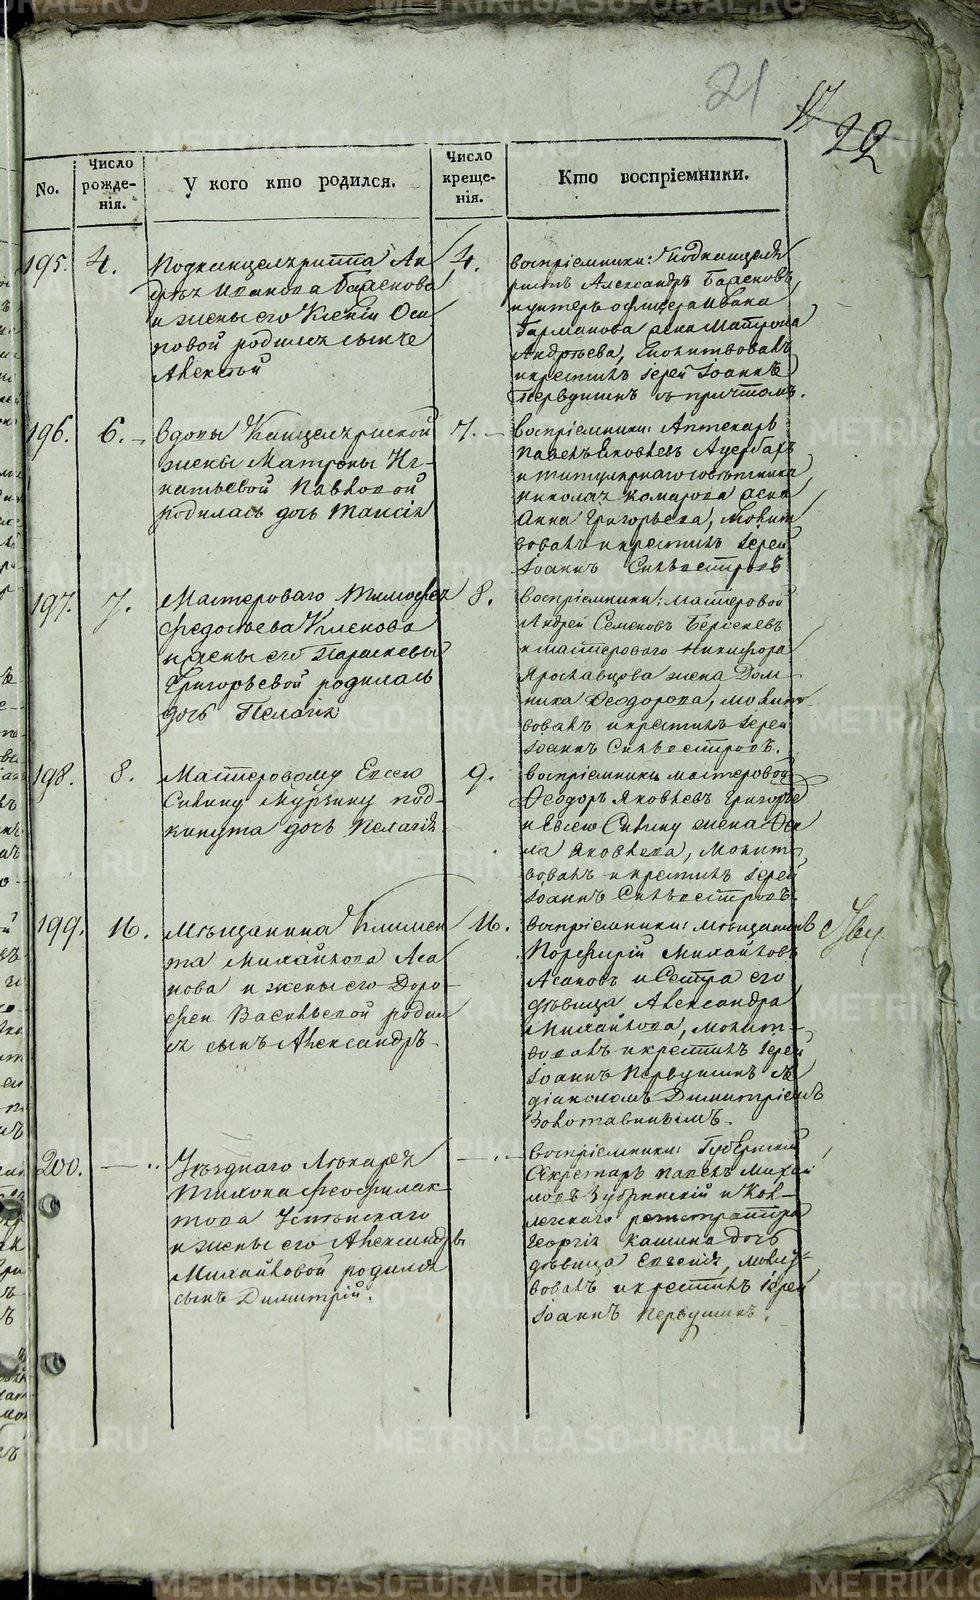 21
17
22
No.
Число
рожде-
нія.
У кого кто родился.
Число
креще-
нія.
Кто воспріемники.
195.
4.
Подканцеляриста Ан
дрея Иванова
и жены его Ксеніи Оси
повой родился сынъ
Алексѣй
4.
воспріемники: Подканцеля
ристъ Александръ
и унтеръ офицера Ивана
Гарманова жена Матрона
Андрѣева, Молитвовалъ
и крестилъ іерей Іоаннъ
Первушинъ съ причтомъ.
196.
6.
вдовы Канцелярской
жены Матроны Иг-
натьевой Павловой
родилась дочь Таисія
7.
воспріемники: Аптекарь
Павелъ Яковлевъ Ауербахъ
и титулярнаго совѣтника
Николая Комарова жена
Анна Григорьева, Молит
вовалъ и крестилъ Іерей
Іоаннъ Сильвестровъ
197.
7.
Мастероваго Тимофея
Федосѣева
и жены его Параскевы
Григорьевой родилась
дочь Пелагія
8.
воспріемники: мастеровой
Андрей Семеновъ Берсеневъ
и мастероваго Никифора
Ярославцова жена Дом-
ника Ѳеодорова, молит-
вовалъ и крестилъ Іерей
Іоаннъ Сильвестровъ.
198.
8.
Мастеровому Евсею
Силину Мурзину под-
кинута дочь Пелагія
9.
воспріемники мастеровой
Ѳеодоръ Яковлевъ
и Евсею Силину жена Ѳек
ла Яковлева, Молит-
вовалъ и крестилъ Іерей
Іоаннъ Сильвестровъ.
199.
16.
Мѣщанина Климен
та Михайлова Аса
нова и жены его Доро-
феи Васильевой родил
ся сынъ Александръ.
16.
воспріемники: мѣщанинъ
Порфирій Михайловъ
Асановъ и сестра его
дѣвица Александра
Михайлова, молит-
вовалъ и крестилъ Іерей
Іоаннъ Первушинъ съ
діакономъ Димитріемъ
Золотавинымъ.
200.
Уѣзднаго Лѣкаря
Тихона Феофилак-
това Успенскаго
и жены его Александры
Михайловой родился
сынъ Димитрій.
воспріемники: Губернскій
Секретарь Павелъ Михай
ловъ Зубринскій и Кол-
лежскаго регистратора
Георгія Кашина дочь
дѣвица Евгенія, молит-
вовалъ и крестилъ Іерей
Іоаннъ Первушинъ.
METRIKI.GASO-URAL.RU